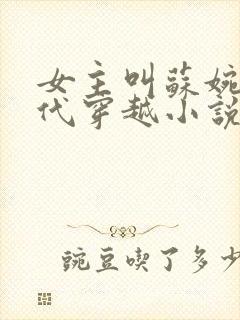 女主叫蘇婉
代穿越小說
豌豆喫了多少